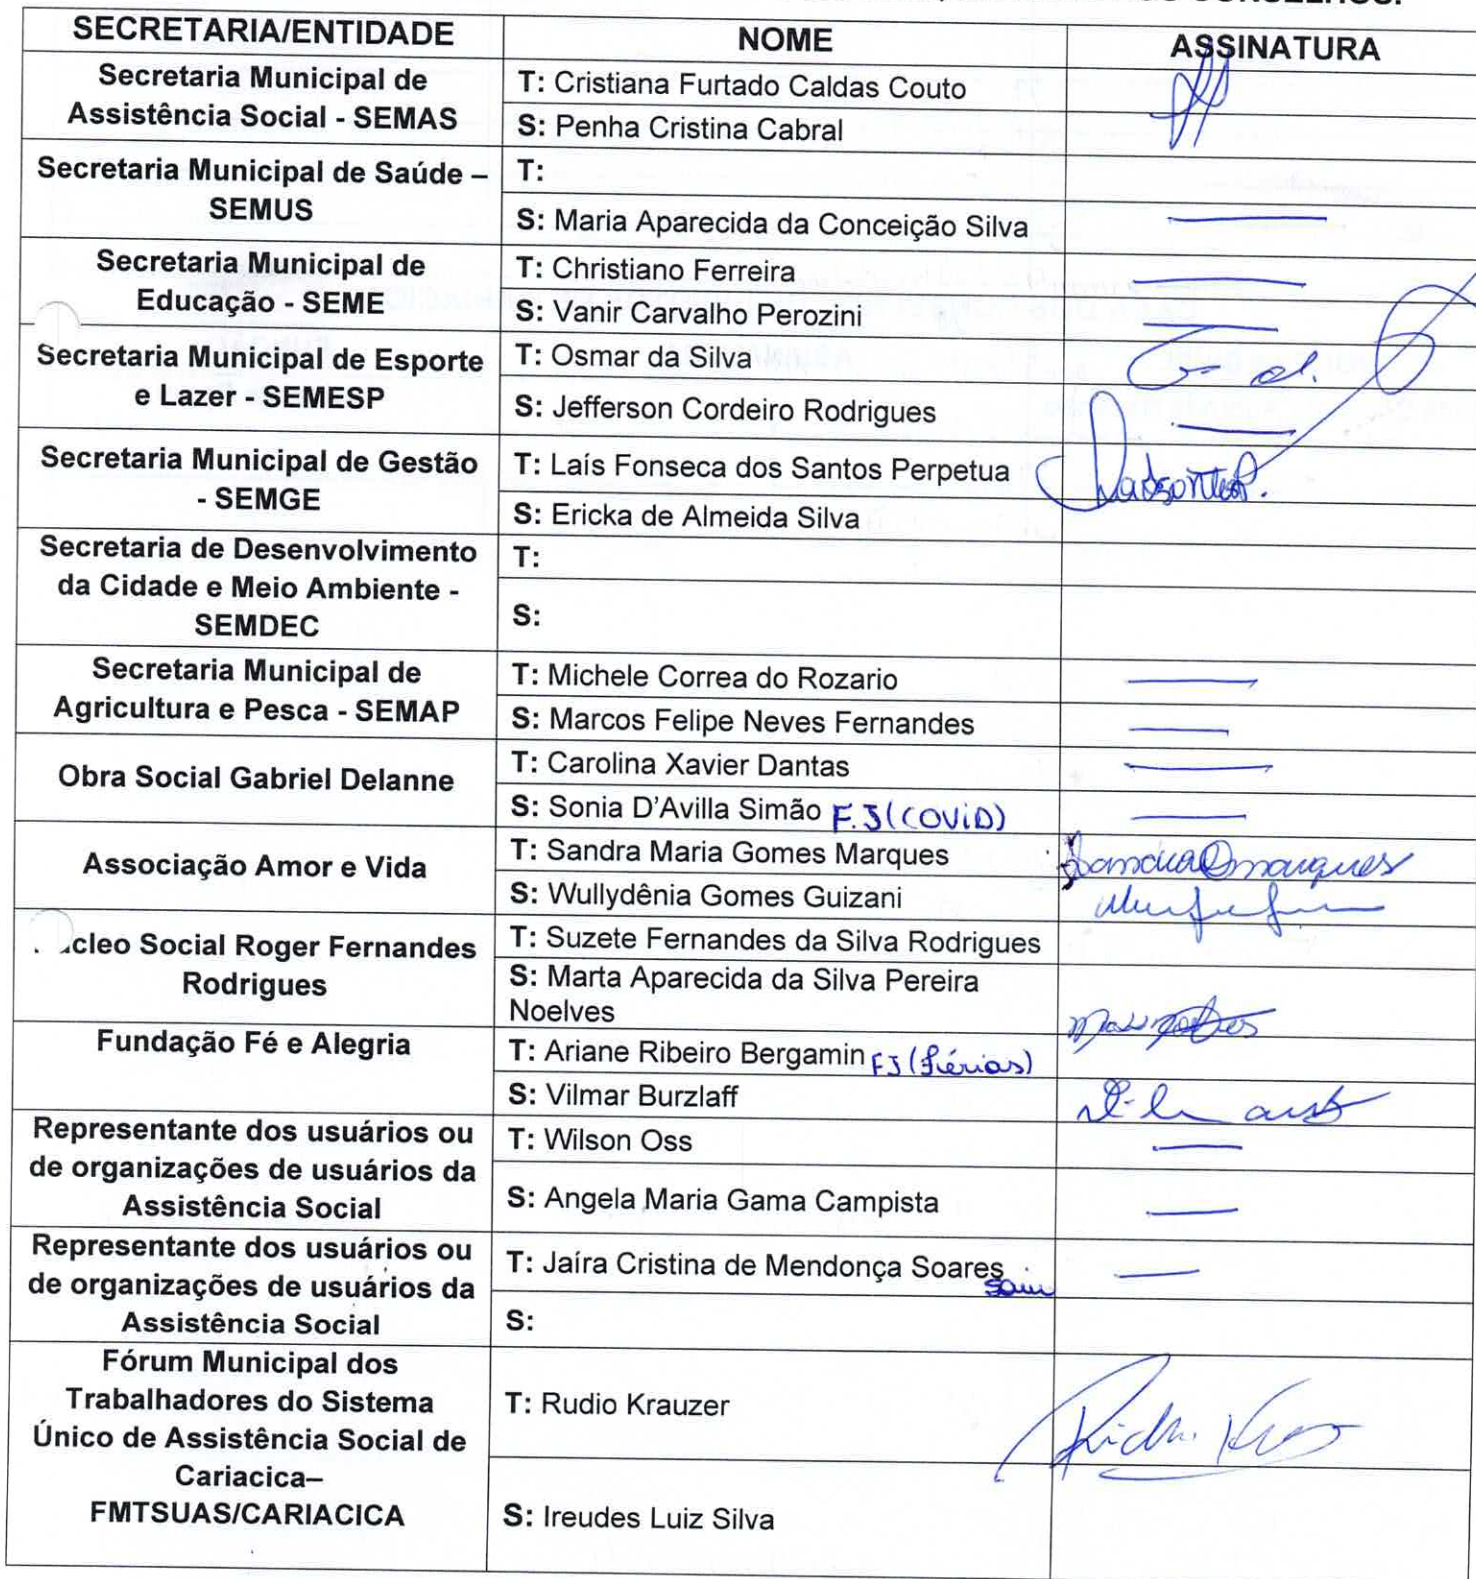 SECRETARIA/ENTIDADE NOME ASSINATURA
Secretaria Municipal de
Assistência Social - SEMAS
T: Cristiana Furtado Caldas Couto
S: Penha Cristina Cabral
Secretaria Municipal de Saúde –
SEMUS
T:
S: Maria Aparecida da Conceição Silva
Secretaria Municipal de
Educação - SEME
T: Christiano Ferreira
S: Vanir Carvalho Perozini
Secretaria Municipal de Esporte
e Lazer - SEMESP
T: Osmar da Silva
S: Jefferson Cordeiro Rodrigues
Secretaria Municipal de Gestão
- SEMGE
T: Laís Fonseca dos Santos Perpetua
S: Ericka de Almeida Silva
Secretaria de Desenvolvimento
da Cidade e Meio Ambiente -
SEMDEC
T:
S:
Secretaria Municipal de
Agricultura e Pesca - SEMAP
T: Michele Correa do Rozario
S: Marcos Felipe Neves Fernandes
Obra Social Gabriel Delanne
T: Carolina Xavier Dantas
S: Sonia D'Avilla Simão F.J (COVID)
Associação Amor e Vida
T: Sandra Maria Gomes Marques
S: Wullydênia Gomes Guizani
Social Roger Fernandes
Rodrigues
T: Suzete Fernandes da Silva Rodrigues
S: Marta Aparecida da Silva Pereira
Noelves
Fundação Fé e Alegria
T: Ariane Ribeiro Bergamin FJ (férias)
S: Vilmar Burzlaff
Representante dos usuários ou
de organizações de usuários da
Assistência Social
T: Wilson Oss
S: Angela Maria Gama Campista
Representante dos usuários ou
de organizações de usuários da
Assistência Social
T: Jaíra Cristina de Mendonça Soares saiu
S:
Fórum Municipal dos
Trabalhadores do Sistema
Único de Assistência Social de
Cariacica–
FMTSUAS/CARIACICA
T: Rudio Krauzer
S: Ireudes Luiz Silva